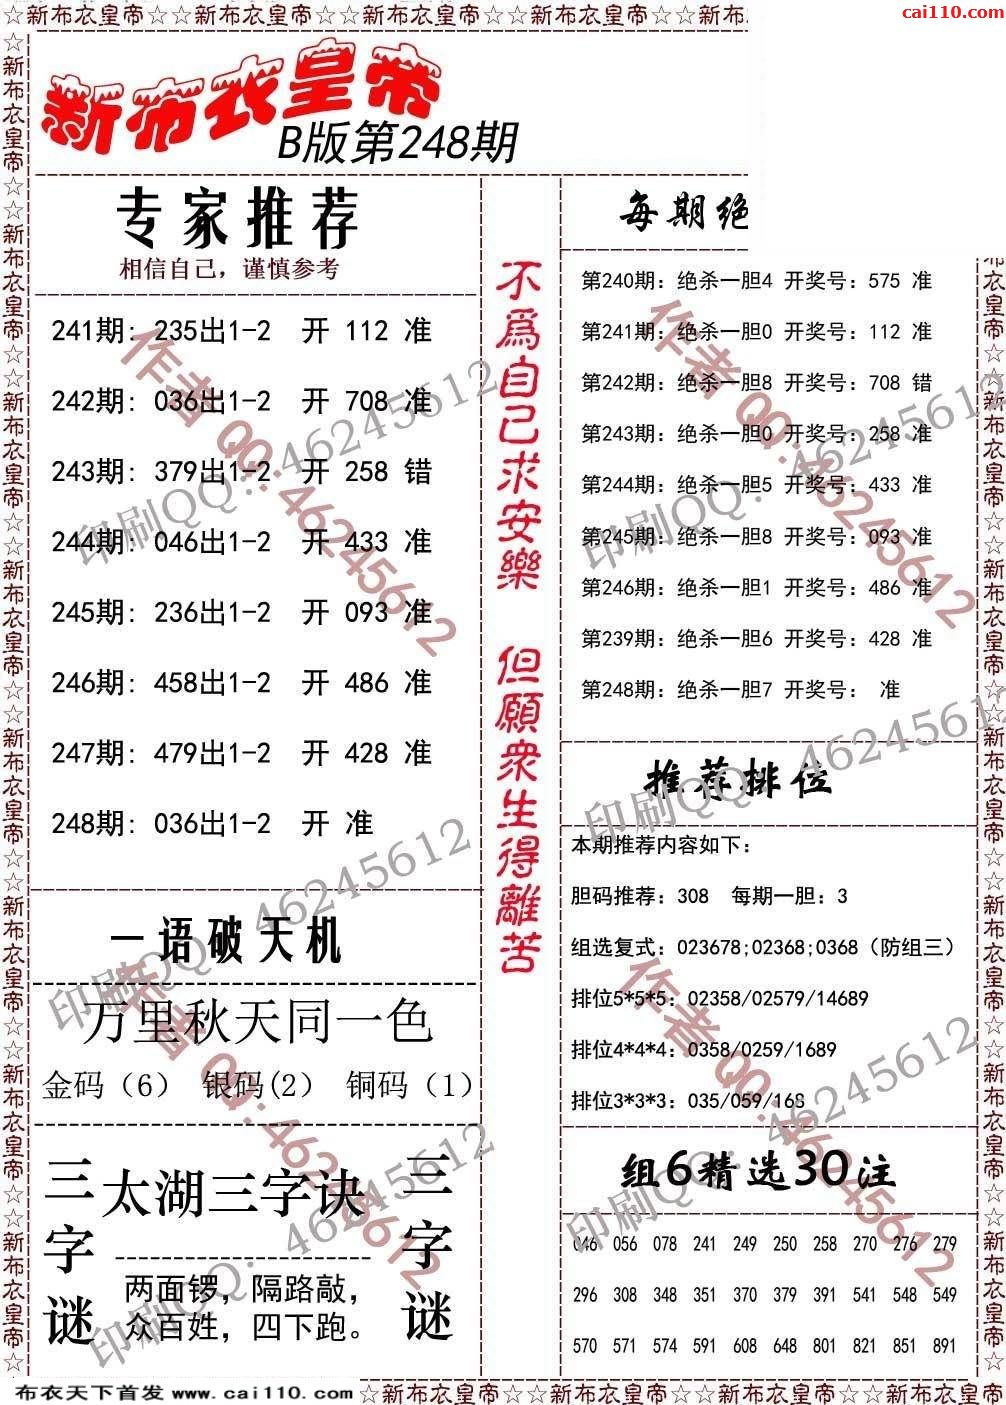 ☆新布衣皇帝☆☆新布衣皇帝☆☆新布衣皇帝☆☆新布衣皇帝☆☆新布
cai110.com
新布衣皇帝
B版第248期
专家推荐
相信自己，谨慎参考
241期: 235出1-2 开 112 准
242期: 036出1-2 开 708 准
243期: 379出1-2 开 258 错
244期: 046出1-2 开 433 准
245期: 236出1-2 开 093 准
246期: 458出1-2 开 486 准
247期: 479出1-2 开 428 准
248期: 036出1-2 开 准
一语破天机
万里秋天同一色
金码（6） 银码(2） 铜码（1）
三字谜
太湖三字诀
两面锣，隔路敲，
众百姓，四下跑。
三字谜
不為自己求安樂 但願衆生得離苦
每期绝
第240期：绝杀一胆4 开奖号：575 准
第241期：绝杀一胆0 开奖号：112 准
第242期：绝杀一胆8 开奖号：708 错
第243期：绝杀一胆0 开奖号：258 准
第244期：绝杀一胆5 开奖号：433 准
第245期：绝杀一胆8 开奖号：093 准
第246期：绝杀一胆1 开奖号：486 准
第239期：绝杀一胆6 开奖号：428 准
第248期：绝杀一胆7 开奖号： 准
推荐排位
本期推荐内容如下：
胆码推荐：308 每期一胆：3
组选复式：023678;02368;0368（防组三）
排位5*5*5：02358/02579/14689
排位4*4*4：0358/0259/1689
排位3*3*3：035/059/168
组6精选30注
046 056 078 241 249 250 258 270 276 279
296 308 348 351 370 379 391 541 548 549
570 571 574 591 608 648 801 821 851 891
作者QQ:46245612
印刷QQ：46245612
作者QQ:46245612
印刷QQ：46245612
作者QQ:46245612
印刷QQ：46245612
作者QQ:46245612
印刷QQ：46245612
印刷QQ：46245612
印刷QQ：46245612
布衣天下首发 www.cai110.com
☆新布衣皇帝☆☆新布衣皇帝☆☆新布衣皇帝☆☆新布衣皇帝☆